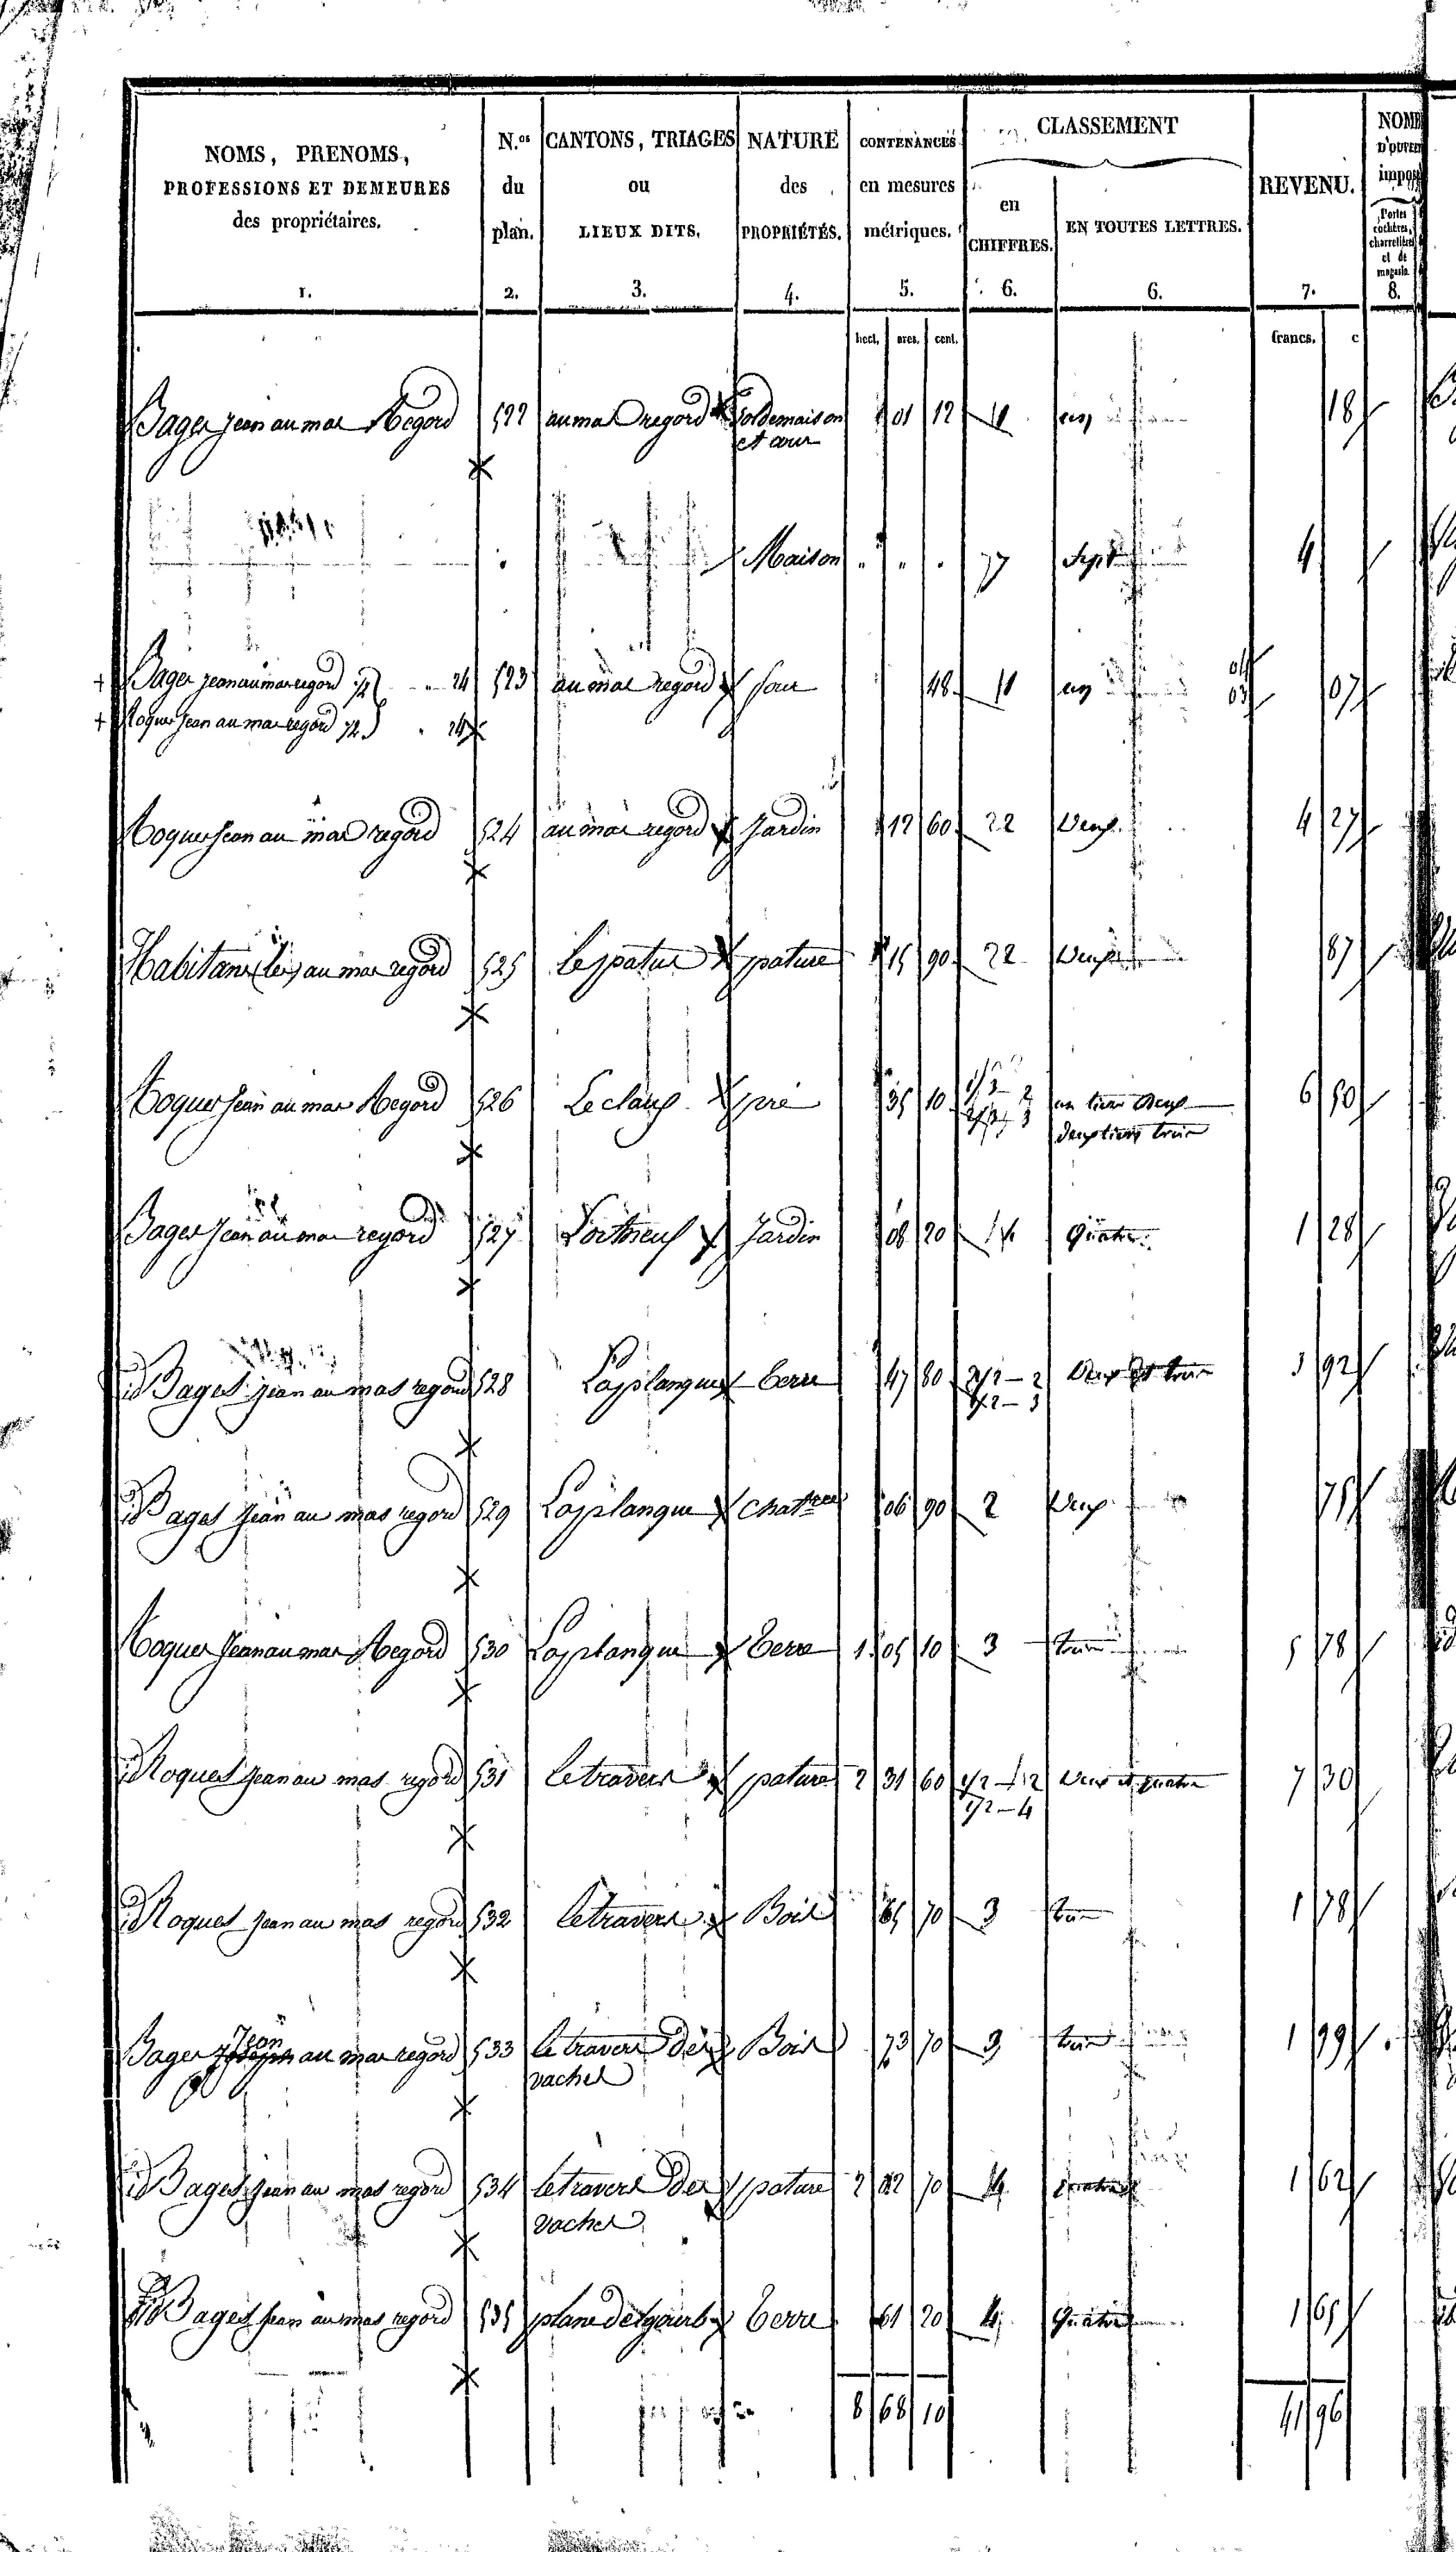 NOMS, PRENOMS,
PROFESSIONS ET DEMEURES
des propriétaires.
1.
N.os
du
plan.
2.
CANTONS, TRIAGES
ou
LIEUX DITS.
3.
NATURE
des
PROPRIÉTÉS.
4.
CONTENANCES
en mesures
métriques.
5.
CLASSEMENT
en
CHIFFRES.
6.
EN TOUTES LETTRES.
6.
REVENU.
7.
NOMB
D'OUVER
impos
Portes
cochères,
charretières
et de
magasin.
8.
hect. ares. cent. francs. c
Bages Jean au mas Regord 522 au mas regord Sol de maison 01 12 1 un 18
et cour
Maison 7 Sept 4
Bages Jean au mas regord 1/2 24 523 au mas regord four 48 1 un 04 07
Roques Jean au mas regord 1/2 24 03
Roques Jean au mas regord 524 au mas regord Jardin 12 60 2 Deux 4 27
Habitans (les) au mas regord 525 Le patus pature 15 90 2 Deux 87
Roques Jean au mas Regord 526 Le claux pré 35 10 1/3 2 un tiers Deux 6 50
2/3 3 deux tiers trois
Bages Jean au mas regord 527 Jardin 08 20 4 Quatre 1 28
id Bages Jean au mas regord 528 La planque terre 47 80 1/2 - 2 Deux et trois 3 92
1/2 - 3
id Bages Jean au mas regord 529 La planque 06 90 2 Deux 75
Roques Jean au mas Regord 530 La planque terre 1 05 10 3 trois 5 78
id Roques Jean au mas regord 531 le travers pature 2 31 60 1/2 - 2 Deux et quatre 7 30
1/2 - 4
id Roques Jean au mas regord 532 le travers Bois 65 70 3 trois 1 78
Bages Jean au mas regord 533 le travers des Bois 73 70 3 trois 1 99
vaches
id Bages Jean au mas regord 534 le travers des pature 2 02 70 4 quatre 1 62
vaches
id Bages Jean au mas regord 535 terre 61 20 4 Quatre 1 65
8 68 10 41 96